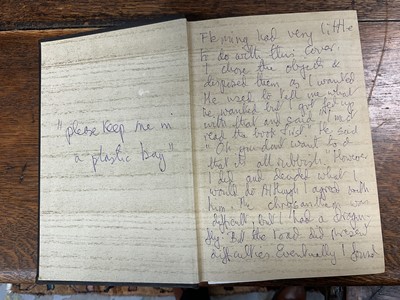 "please keep me in
a plastic bag"
Fleming had very little
to do with this cover.
I chose the objects &
disposed them as I wanted
He used to tell me what
he wanted but I got fed up
with that and said "I must
read the book first". He said
"Oh you don't want to do
that it's all rubbish". However
I did and decided what I
would do Although I agreed with
him. The chrysanthemum was
difficult, but I had a
fly. But the toad did present
difficulties. Eventually I found